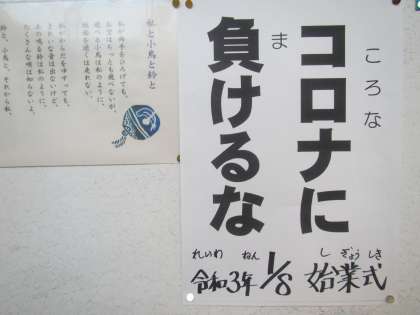 ころな
コロナに
ま
負けるな
れいわ ねん しぎょうしき
令和3年 1/8 始業式
私と小鳥と鈴と
私が両手をひろげても、
お空はちっとも飛べないが、
飛べる小鳥は私のように、
地面を速くは走れない。
私がからだをゆすっても、
きれいな音は出ないけど、
あの鳴る鈴は私のように、
たくさんな唄は知らないよ。
鈴と、小鳥と、それから私、